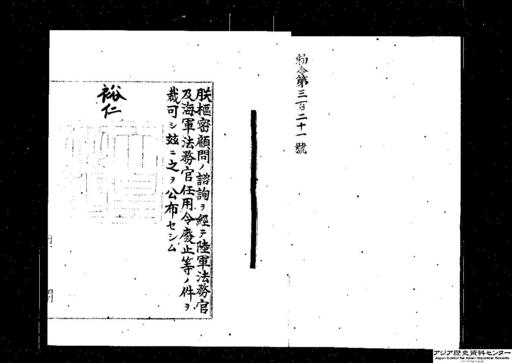 勅令第三百二十一號
朕樞密顧問ノ諮詢ヲ經テ陸軍法務官
及海軍法務官任用令廢止等ノ件ヲ
裁可シ玆ニ之ヲ公布セシム
裕仁
アジア歴史資料センター
Japan Center for Asian Historical Records